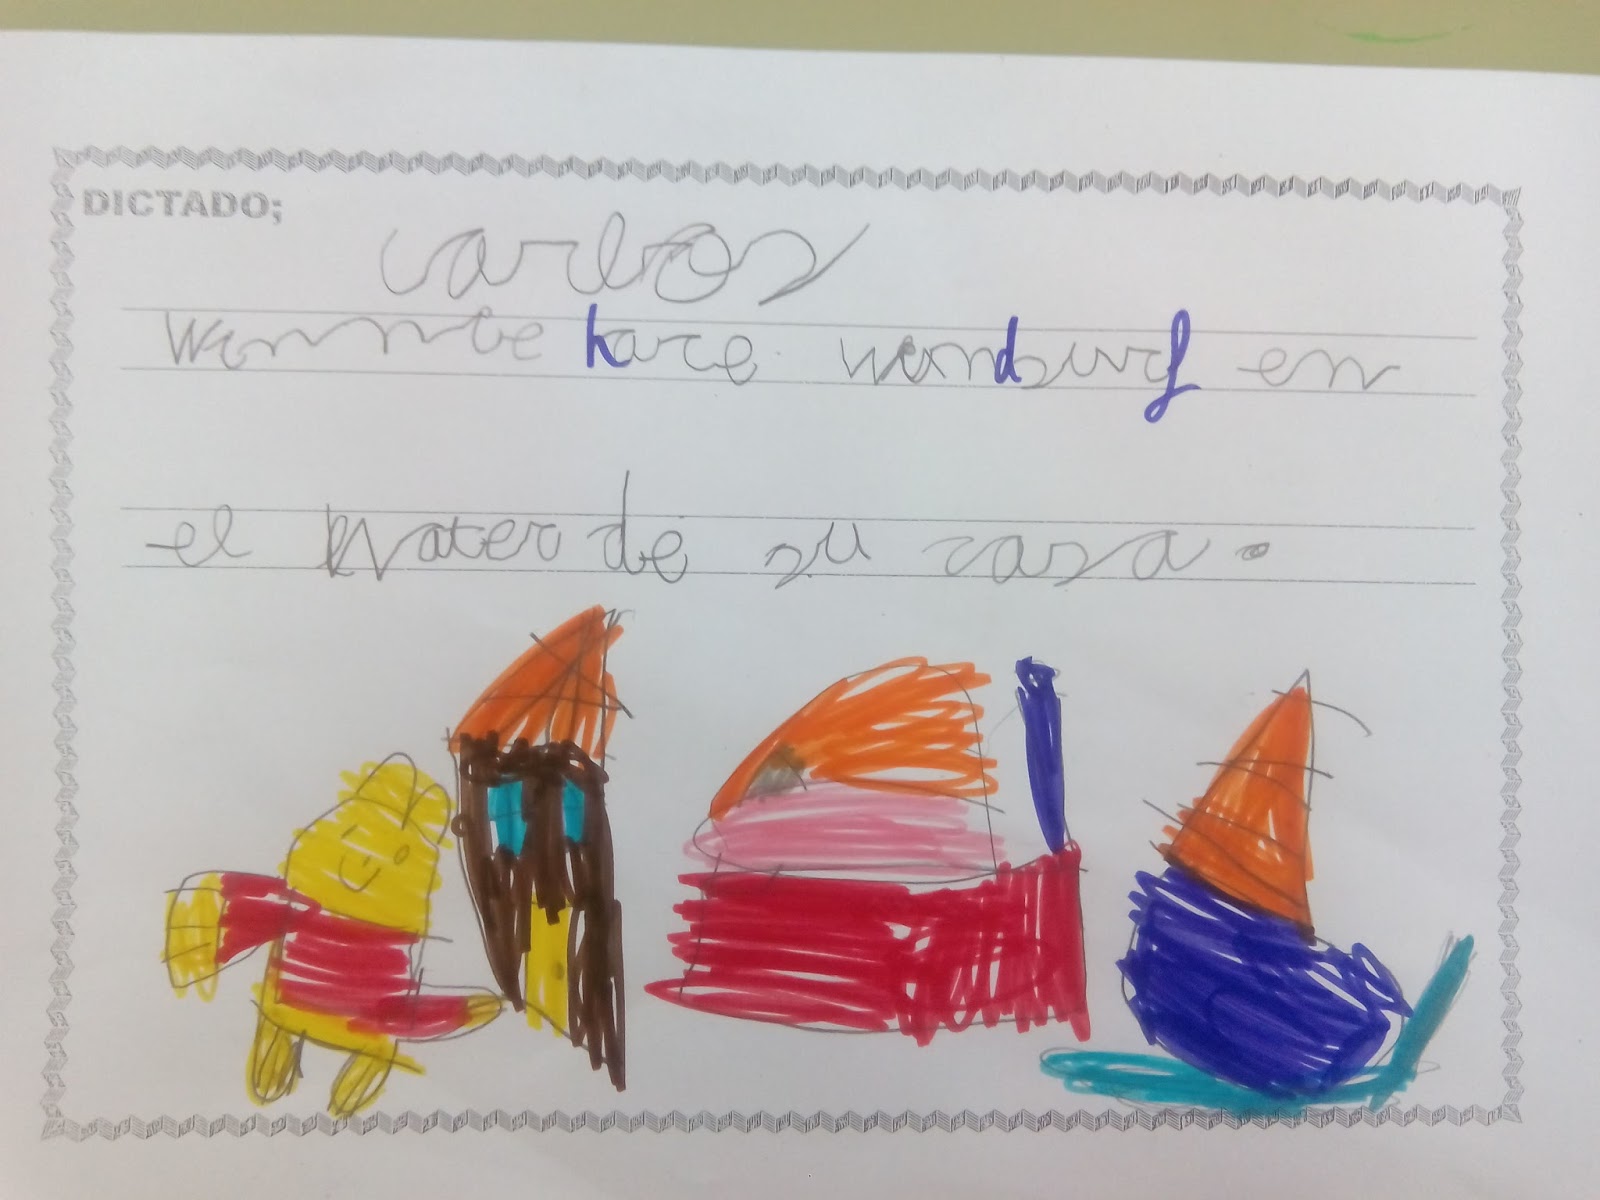 DICTADO;
carlos
Winnie hace windsurf en
el water de su casa.